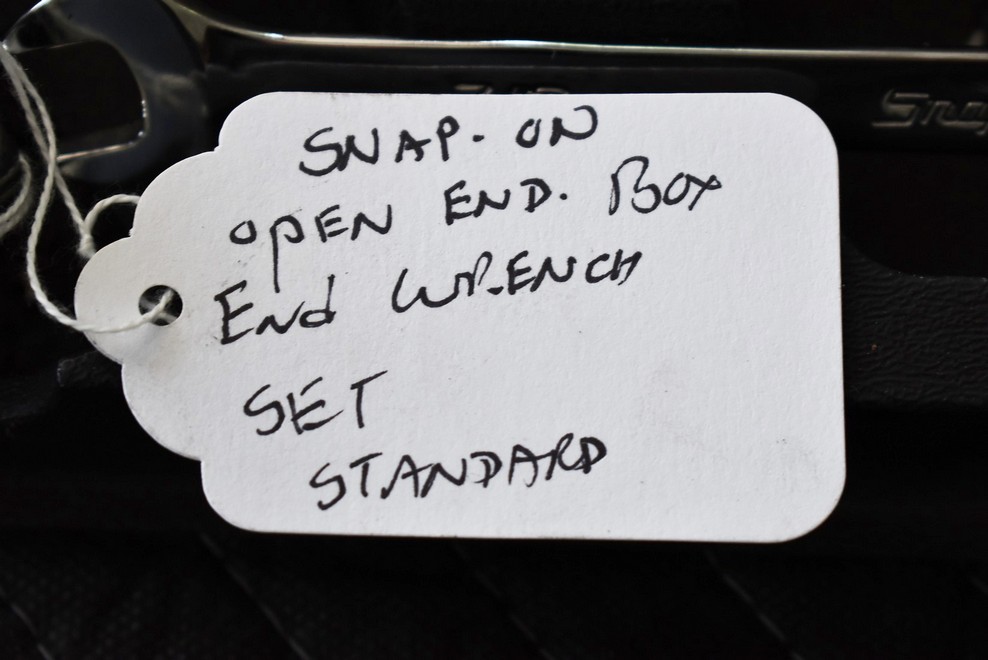 SNAP-ON
OPEN END. BOX
End WRENCH
SET
STANDARD
Snap